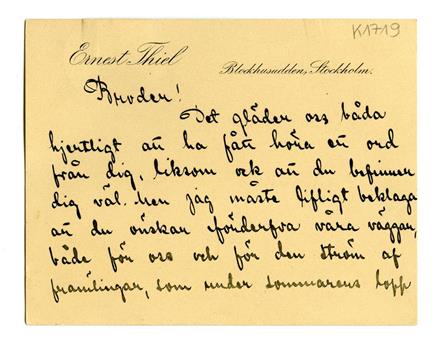 K1719
Ernest Thiel
Blockhusudden, Stockholm.
Broder!
Det gläder oss båda
hjertligt att ha fått höra ett ord
från dig, liksom ock att du befinner
dig väl. Men jag måste lifligt beklaga
att du önskar förderfva våra väggar,
både för oss och för den ström af
framlingar, som under sommarens lopp